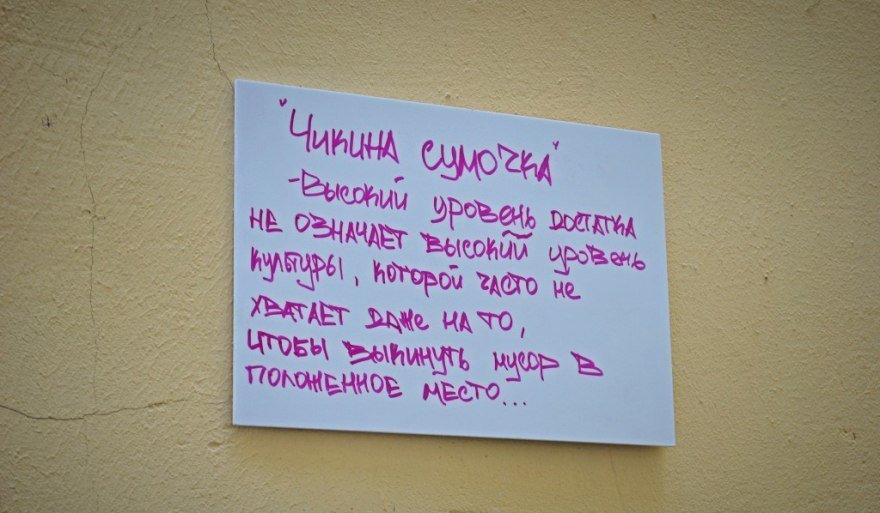 "Чикина сумочка"
-Высокий уровень достатка
не означает высокий уровень
культуры, которой часто не
хватает даже на то,
чтобы выкинуть мусор в
положенное место...